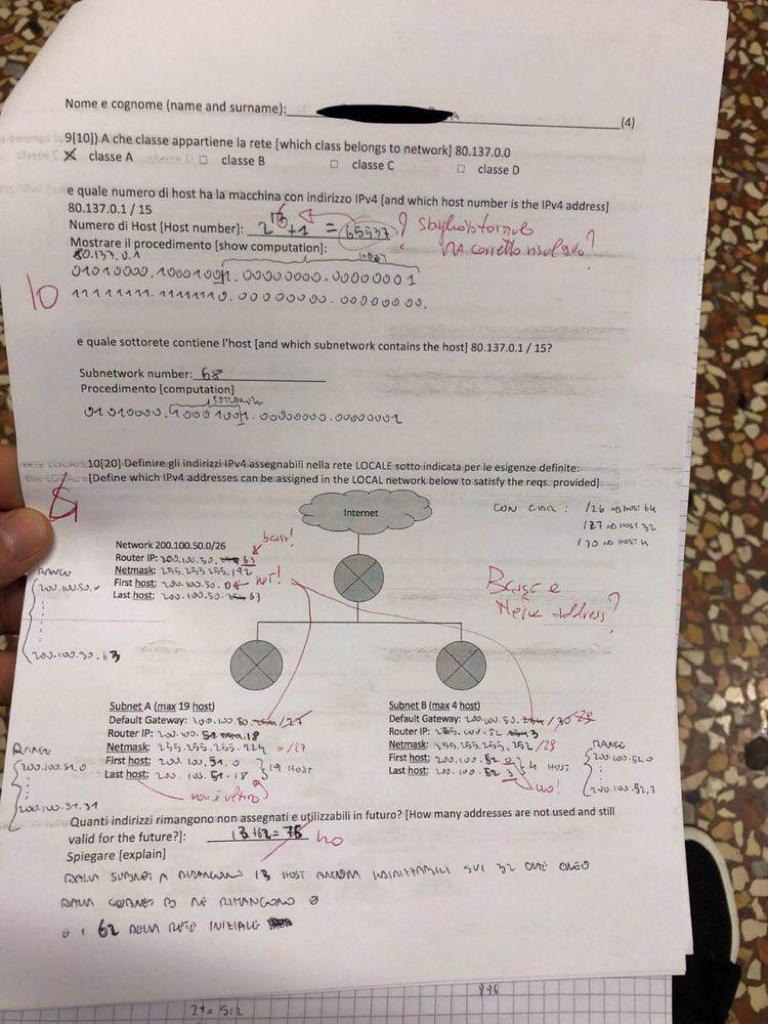 Nome e cognome (name and surname):
(4)
9[10]) A che classe appartiene la rete [which class belongs to network] 80.137.0.0
X classe A □ classe B □ classe C □ classe D
e quale numero di host ha la macchina con indirizzo IPv4 [and which host number is the IPv4 address]
80.137.0.1 / 15
Numero di Host [Host number]: 2^16+1 = 65537 ?
Mostrare il procedimento [show computation]:
80.137.0.1
01010000.10001001.00000000.00000001
11111111.11111110.00000000.00000000.
10
e quale sottorete contiene l'host [and which subnetwork contains the host] 80.137.0.1 / 15?
Subnetwork number: 68
Procedimento [computation]
01010000.10001001.00000000.00000001
10[20] Definire gli indirizzi IPv4 assegnabili nella rete LOCALE sotto indicata per le esigenze definite:
[Define which IPv4 addresses can be assigned in the LOCAL network below to satisfy the reqs. provided]
Internet
CON CIDR: /26 HOST 64
/27 HOST 32
/30 HOST 4
Network 200.100.50.0/26
Router IP: 200.100.50. 63
bcast!
Netmask: 255.255.255.192
First host: 200.100.50.0
net!
Last host: 200.100.50. 63
RANGE
200.100.50.0
200.100.50.63
Bcast e
Net address?
Subnet A (max 19 host)
Default Gateway: 200.100.50. /27
Router IP: 200.100.51. 18
Netmask: 255.255.255.224 = /27
First host: 200.100.51.0
Last host: 200.100.51.18
19 HOST
RANGE
200.100.51.0
200.100.51.31
Subnet B (max 4 host)
Default Gateway: 200.100.50. /30 29
Router IP: 200.100.52. 3
Netmask: 255.255.255.252 /29
First host: 200.100.52.0
Last host: 200.100.52.3
4 HOST
no!
RANGE
200.100.52.0
200.100.52.3
Quanti indirizzi rimangono non assegnati e utilizzabili in futuro? [How many addresses are not used and still
valid for the future?]: 13+62=75 no
Spiegare [explain]
DALLA SUBNET A RIMANGONO 13 HOST ANCORA INDIRIZZABILI SUI 32 CHE CREO
DALLA SUBNET B NE RIMANGONO 0
E I 62 DELLA RETE INIZIALE